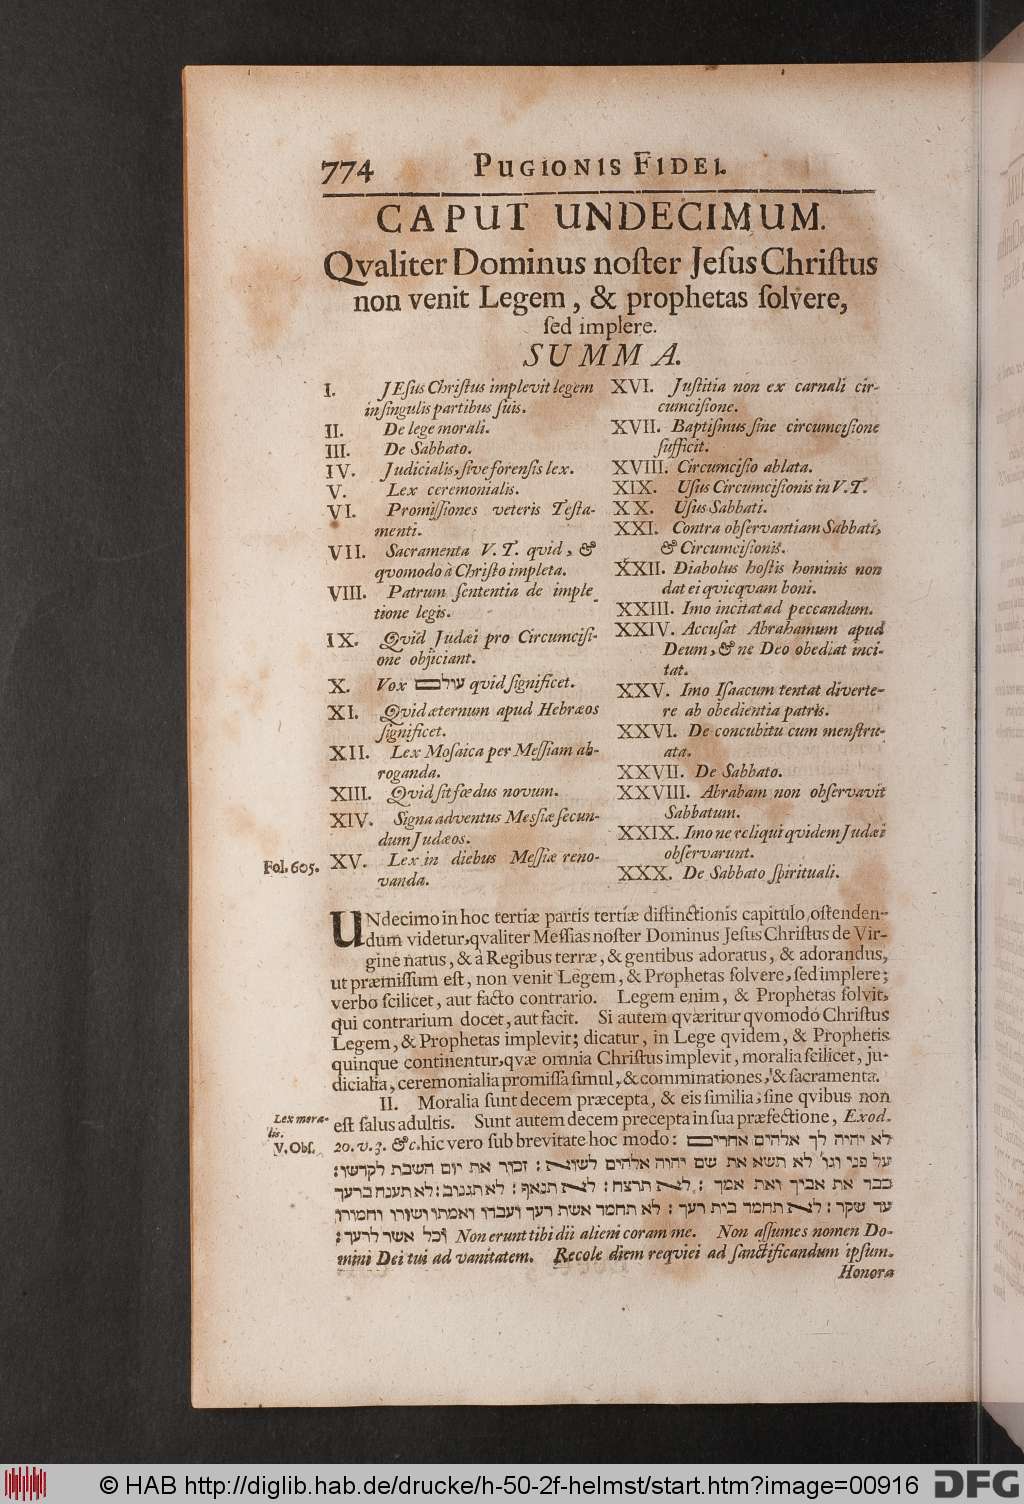 774 PUGIONIS FIDEI.
CAPUT UNDECIMUM.
Qvaliter Dominus noſter Jeſus Chriſtus
non venit Legem, & prophetas ſolvere,
ſed implere.
SUMMA.
I. JEſus Chriſtus implevit legem
in ſingulis partibus ſuis.
II. De lege morali.
III. De Sabbato.
IV. Judicialis, ſive forenſis lex.
V. Lex ceremonialis.
VI. Promiſſiones veteris Teſta-
menti.
VII. Sacramenta V. T. quid, &
qvomodo à Chriſto impleta.
VIII. Patrum ſententia de imple-
tione legis.
IX. Qvid Judæi pro Circumciſi-
one objiciant.
X. Vox עולם quid ſignificet.
XI. Qvid æternum apud Hebræos
ſignificet.
XII. Lex Moſaica per Meſſiam ab-
roganda.
XIII. Qvid ſit fœdus novum.
XIV. Signa adventus Meſſiæ ſecun-
dum Judæos.
Fol. 605. XV. Lex in diebus Meſſiæ reno-
vanda.
XVI. Juſtitia non ex carnali cir-
cumciſione.
XVII. Baptiſmus ſine circumciſione
ſufficit.
XVIII. Circumciſio ablata.
XIX. Uſus Circumciſionis in V. T.
XX. Uſus Sabbati.
XXI. Contra obſervantiam Sabbati,
& Circumciſionis.
XXII. Diabolus hoſtis hominis non
dat ei qvicqvam boni.
XXIII. Imo incitat ad peccandum.
XXIV. Accuſat Abrahamum apud
Deum, & ne Deo obediat inci-
tat.
XXV. Imo Iſaacum tentat diverte-
re ab obedientia patris.
XXVI. De concubitu cum menſtru-
ata.
XXVII. De Sabbato.
XXVIII. Abraham non obſervavit
Sabbatum.
XXIX. Imo ne reliqui qvidem Judæi
obſervarunt.
XXX. De Sabbato ſpirituali.
UNdecimo in hoc tertiæ partis tertiæ diſtinctionis capitulo, oſtenden-
dum videtur, qvaliter Meſſias noſter Dominus Jeſus Chriſtus de Vir-
gine natus, & à Regibus terræ, & gentibus adoratus, & adorandus,
ut præmiſſum eſt, non venit Legem, & Prophetas ſolvere, ſed implere;
verbo ſcilicet, aut facto contrario. Legem enim, & Prophetas ſolvit,
qui contrarium docet, aut facit. Si autem qværitur qvomodó Chriſtus
Legem, & Prophetas implevit; dicatur, in Lege qvidem, & Prophetis
quinque continentur, qvæ omnia Chriſtus implevit, moralia ſcilicet, ju-
dicialia, ceremonialia promiſſa ſimul, & comminationes, & ſacramenta.
II. Moralia ſunt decem præcepta, & eis ſimilia, ſine qvibus non
Lex mora- eſt ſalus adultis. Sunt autem decem precepta in ſua præfectione, Exod.
lis.
V. Obſ. 20. v. 3. &c. hic vero ſub brevitate hoc modo: לא יהיה לך אלהים אחרים
על פני וגו' לא תשא את שם יהוה אלהים לשוא: זכור את יום השבת לקדשו:
כבד את אביך ואת אמך: לא תרצח: לא תנאף: לא תגנוב: לא תענה ברעך
עד שקר: לא תחמד בית רעך: לא תחמד אשת רעך ועבדו ואמתו ושורו וחמורו
וכל אשר לרעך: Non erunt tibi dii alieni coram me. Non aſſumes nomen Do-
mini Dei tui ad vanitatem. Recole diem reqviei ad ſanctificandum ipſum.
Honora
© HAB http://diglib.hab.de/drucke/h-50-2f-helmst/start.htm?image=00916 DFG